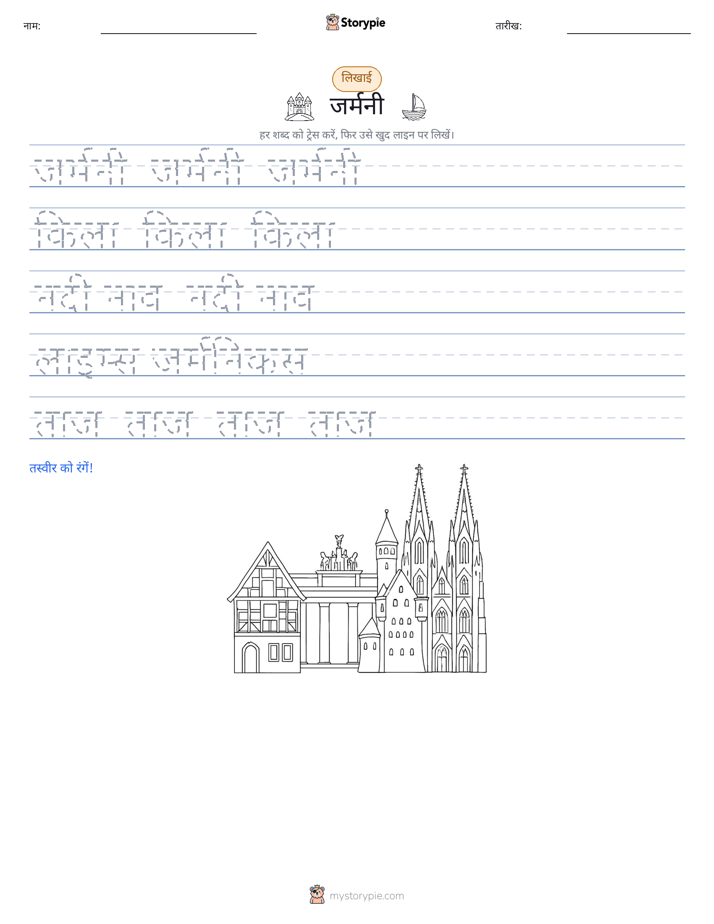 नाम:
Storypie
तारीख:
लिखाई
जर्मनी
हर शब्द को ट्रेस करें, फिर उसे खुद लाइन पर लिखें।
जर्मनी जर्मनी जर्मनी
किला किला किला
नदी नाव नदी नाव
लाइम्स जर्मानिकस
ताज ताज ताज ताज
तस्वीर को रंगें!
mystorypie.com